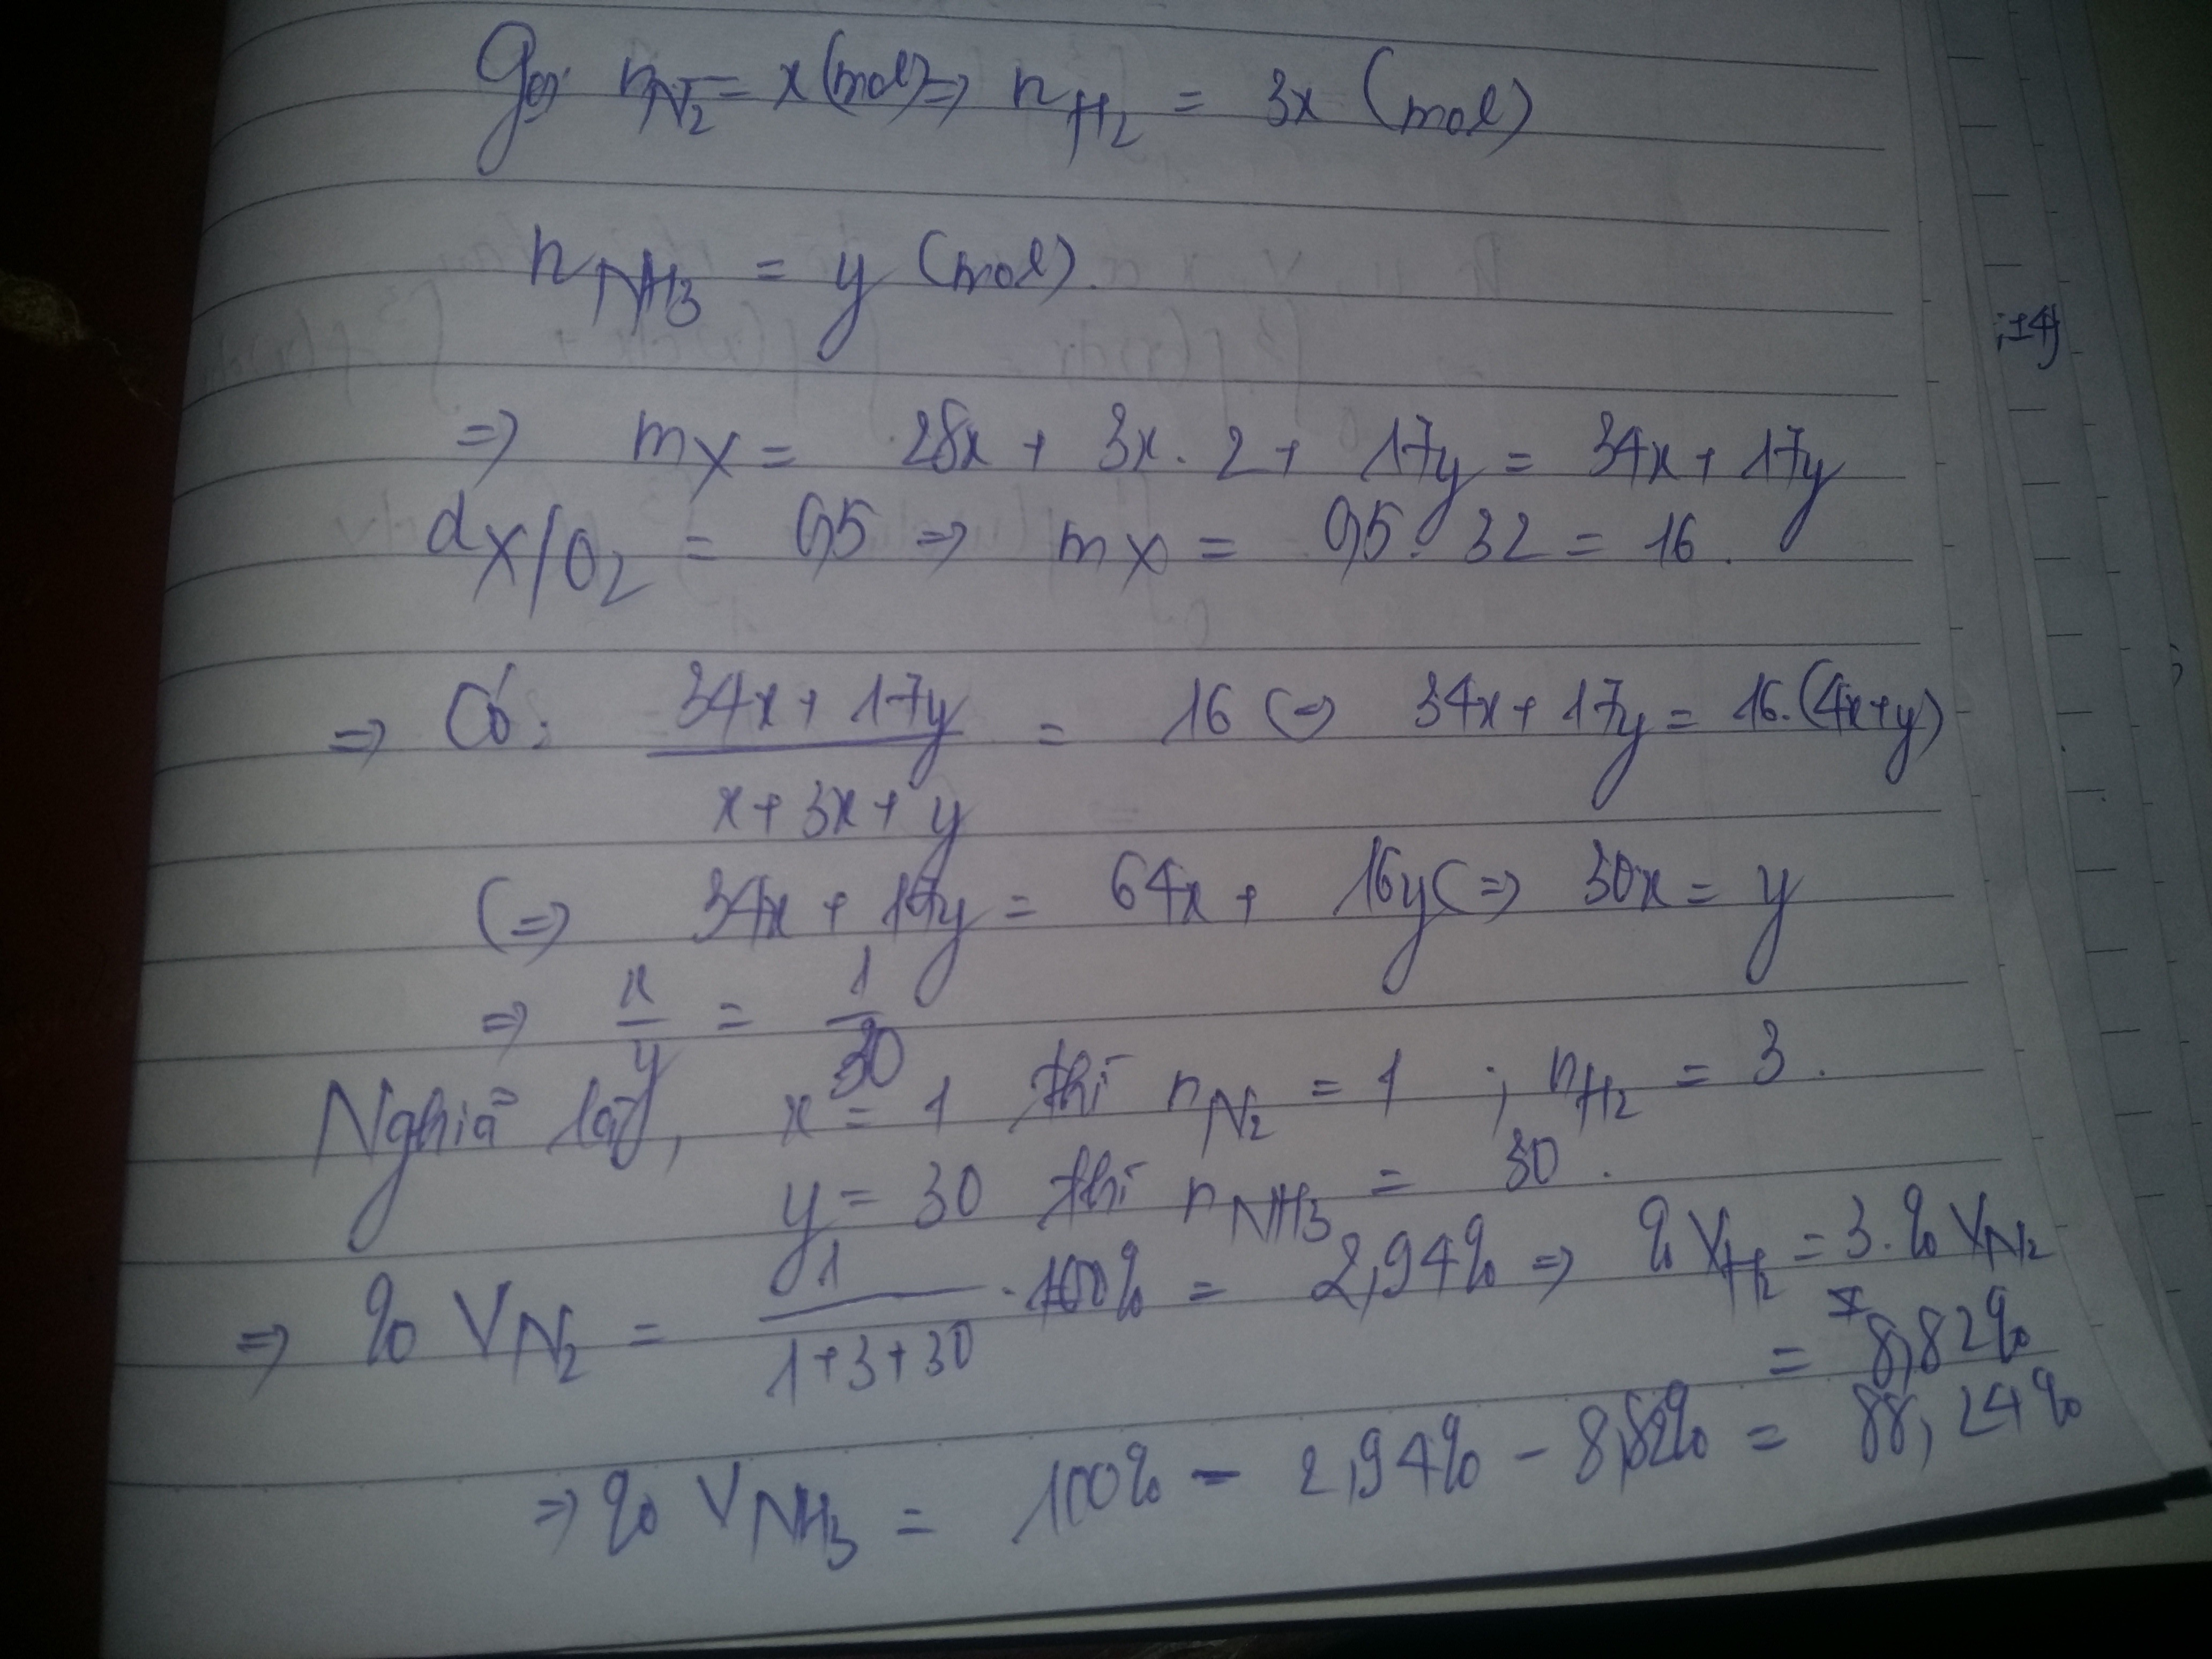 Gọi n N₂ = x (mol) => n H₂ = 3x (mol)
n NH3 = y (mol).
=> mX = 28x + 3x. 2 + 17y = 34x + 17y
dX/O₂ = 0,5 => mX = 0,5. 32 = 16.
=> Có: (34x + 17y)/(x + 3x + y) = 16 (=> 34x + 17y = 16.(4x+y)
(=> 34x + 17y = 64x + 16y (=> 30x = y
=> x/y = 1/30
Nghĩa là, x = 1 thì n N₂ = 1 ; n H₂ = 3.
y = 30 thì n NH3 = 30.
=> % V N₂ = 1/(1+3+30) . 100% = 2,94% => % V H₂ = 3.% V N₂
= 8,82%
=> % V NH3 = 100% - 2,94% - 8,82% = 88,24%
;±4}